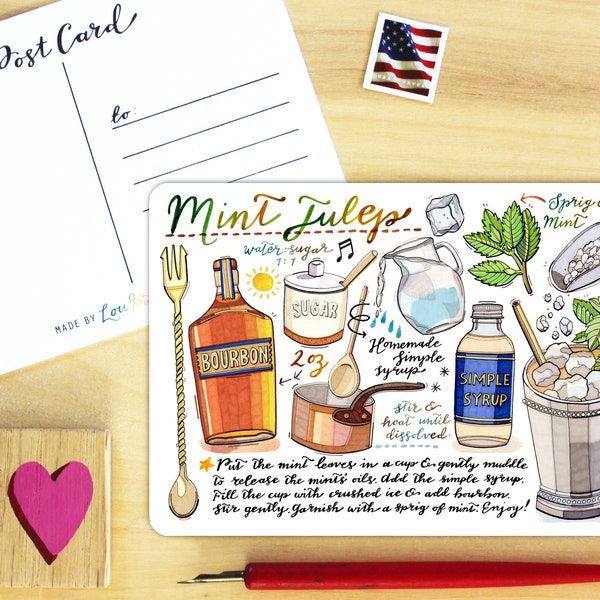 Post Card
to:
MADE BY
Mint Julep
water:sugar
1:1
SUGAR
BOURBON
2oz
Homemade
Simple
syrup
stir &
heat until
dissolved.
SIMPLE
SYRUP
Sprig
Mint
Put the mint leaves in a cup & gently muddle
to release the mints' oils. Add the simple syrup.
Fill the cup with crushed ice & add bourbon.
Stir gently. Garnish with a sprig of mint. Enjoy!